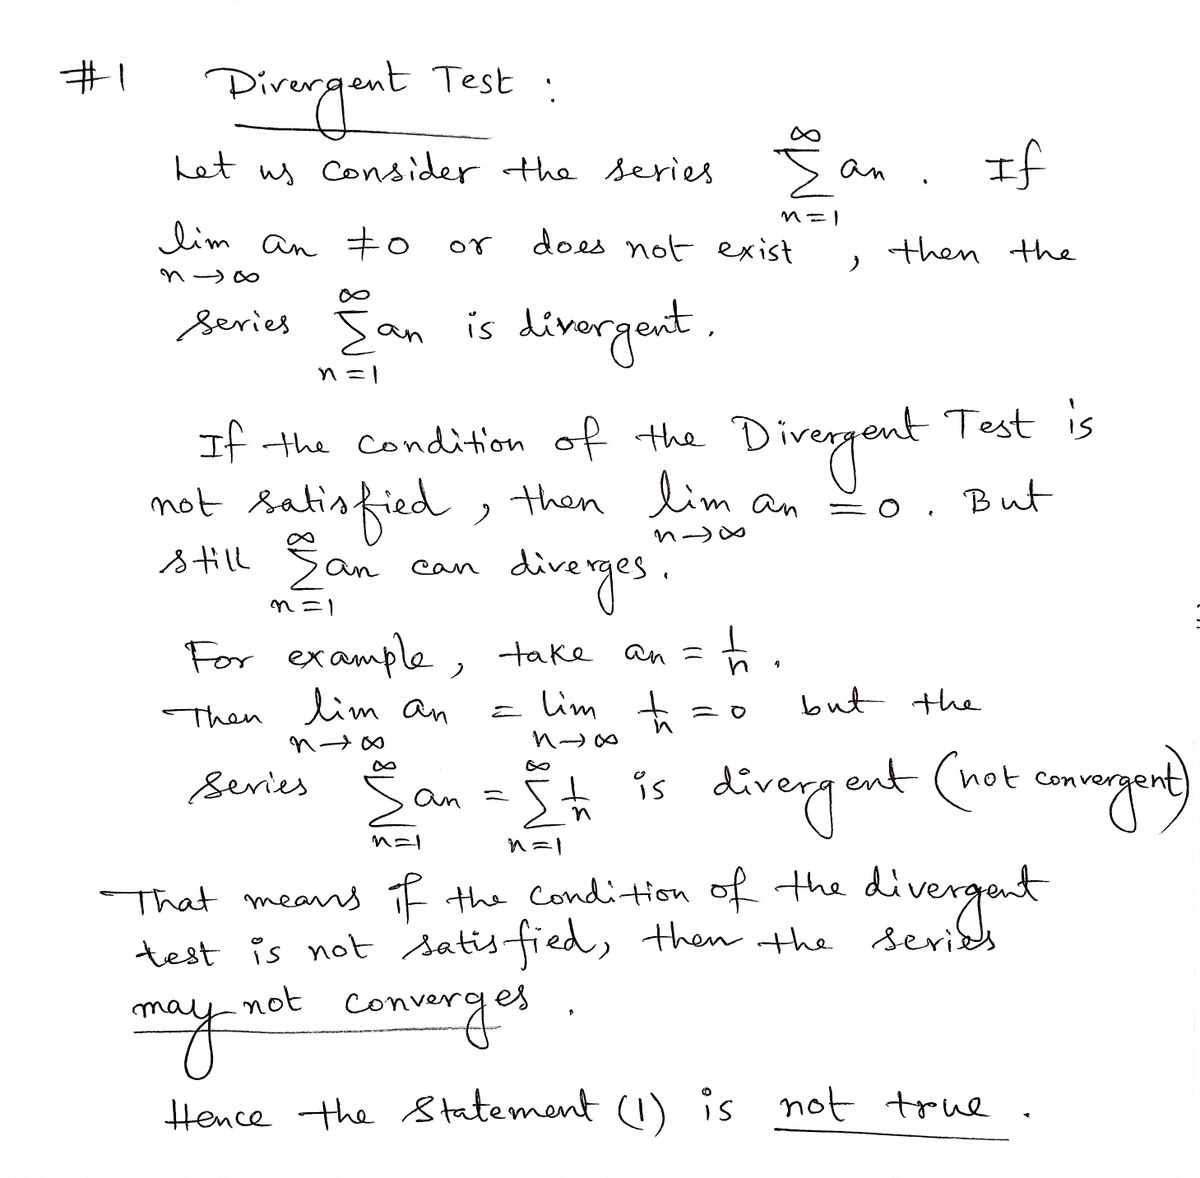 #1 Divergent Test :
Let us consider the series ∞ Σ n=1 an . If
lim n→∞ an ≠0 or does not exist , then the
series ∞ Σ n=1 an is divergent .
If the condition of the Divergent Test is
not satisfied , then lim n→∞ an =0 . But
still ∞ Σ n=1 an can diverges .
For example , take an = 1/n .
Then lim n→∞ an = lim n→∞ 1/n =0 but the
series ∞ Σ n=1 an = ∞ Σ n=1 1/n is divergent (not convergent)
That means if the condition of the divergent
test is not satisfied, then the series
may not converges .
Hence the Statement (1) is not true .